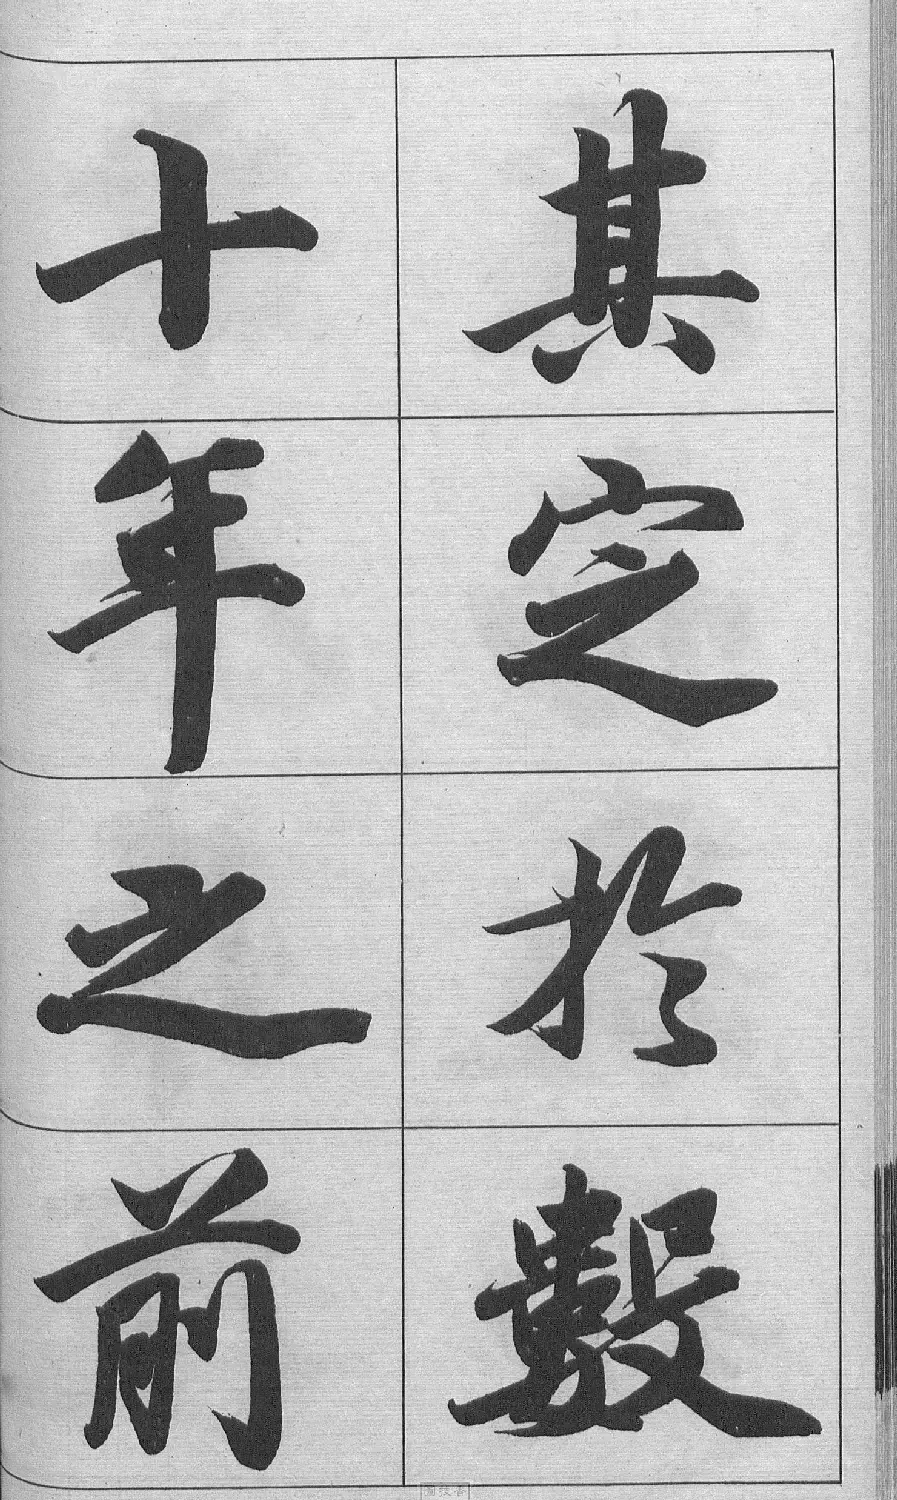 其定於數
十年之前